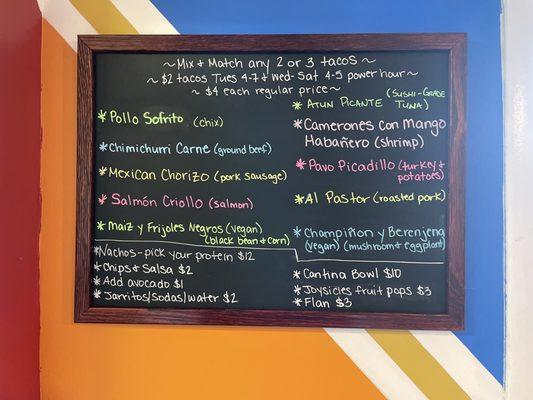 ~Mix & Match any 2 or 3 tacos~
~$2 tacos Tues 4-7 & Wed-Sat 4-5 power hour~
~$4 each regular price~
* Pollo Sofrito (chix)
* Chimichurri Carne (ground beef)
* Mexican Chorizo (pork sausage)
* Salmón Criollo (salmon)
* Maiz y Frijoles Negros (vegan)
(black bean & corn)
* Atun Picante (Sushi-Grade
Tuna)
* Camerones con Mango
Habañero (shrimp)
* Pavo Picadillo (turkey &
potatoes)
* Al Pastor (roasted pork)
* Champiñon y Berenjena
(vegan) (mushroom & eggplant)
* Nachos-pick your protein $12
* Chips & Salsa $2
* Add avocado $1
* Jarritos/Sodas/water $2
* Cantina Bowl $10
* Joysicles fruit pops $3
* Flan $3